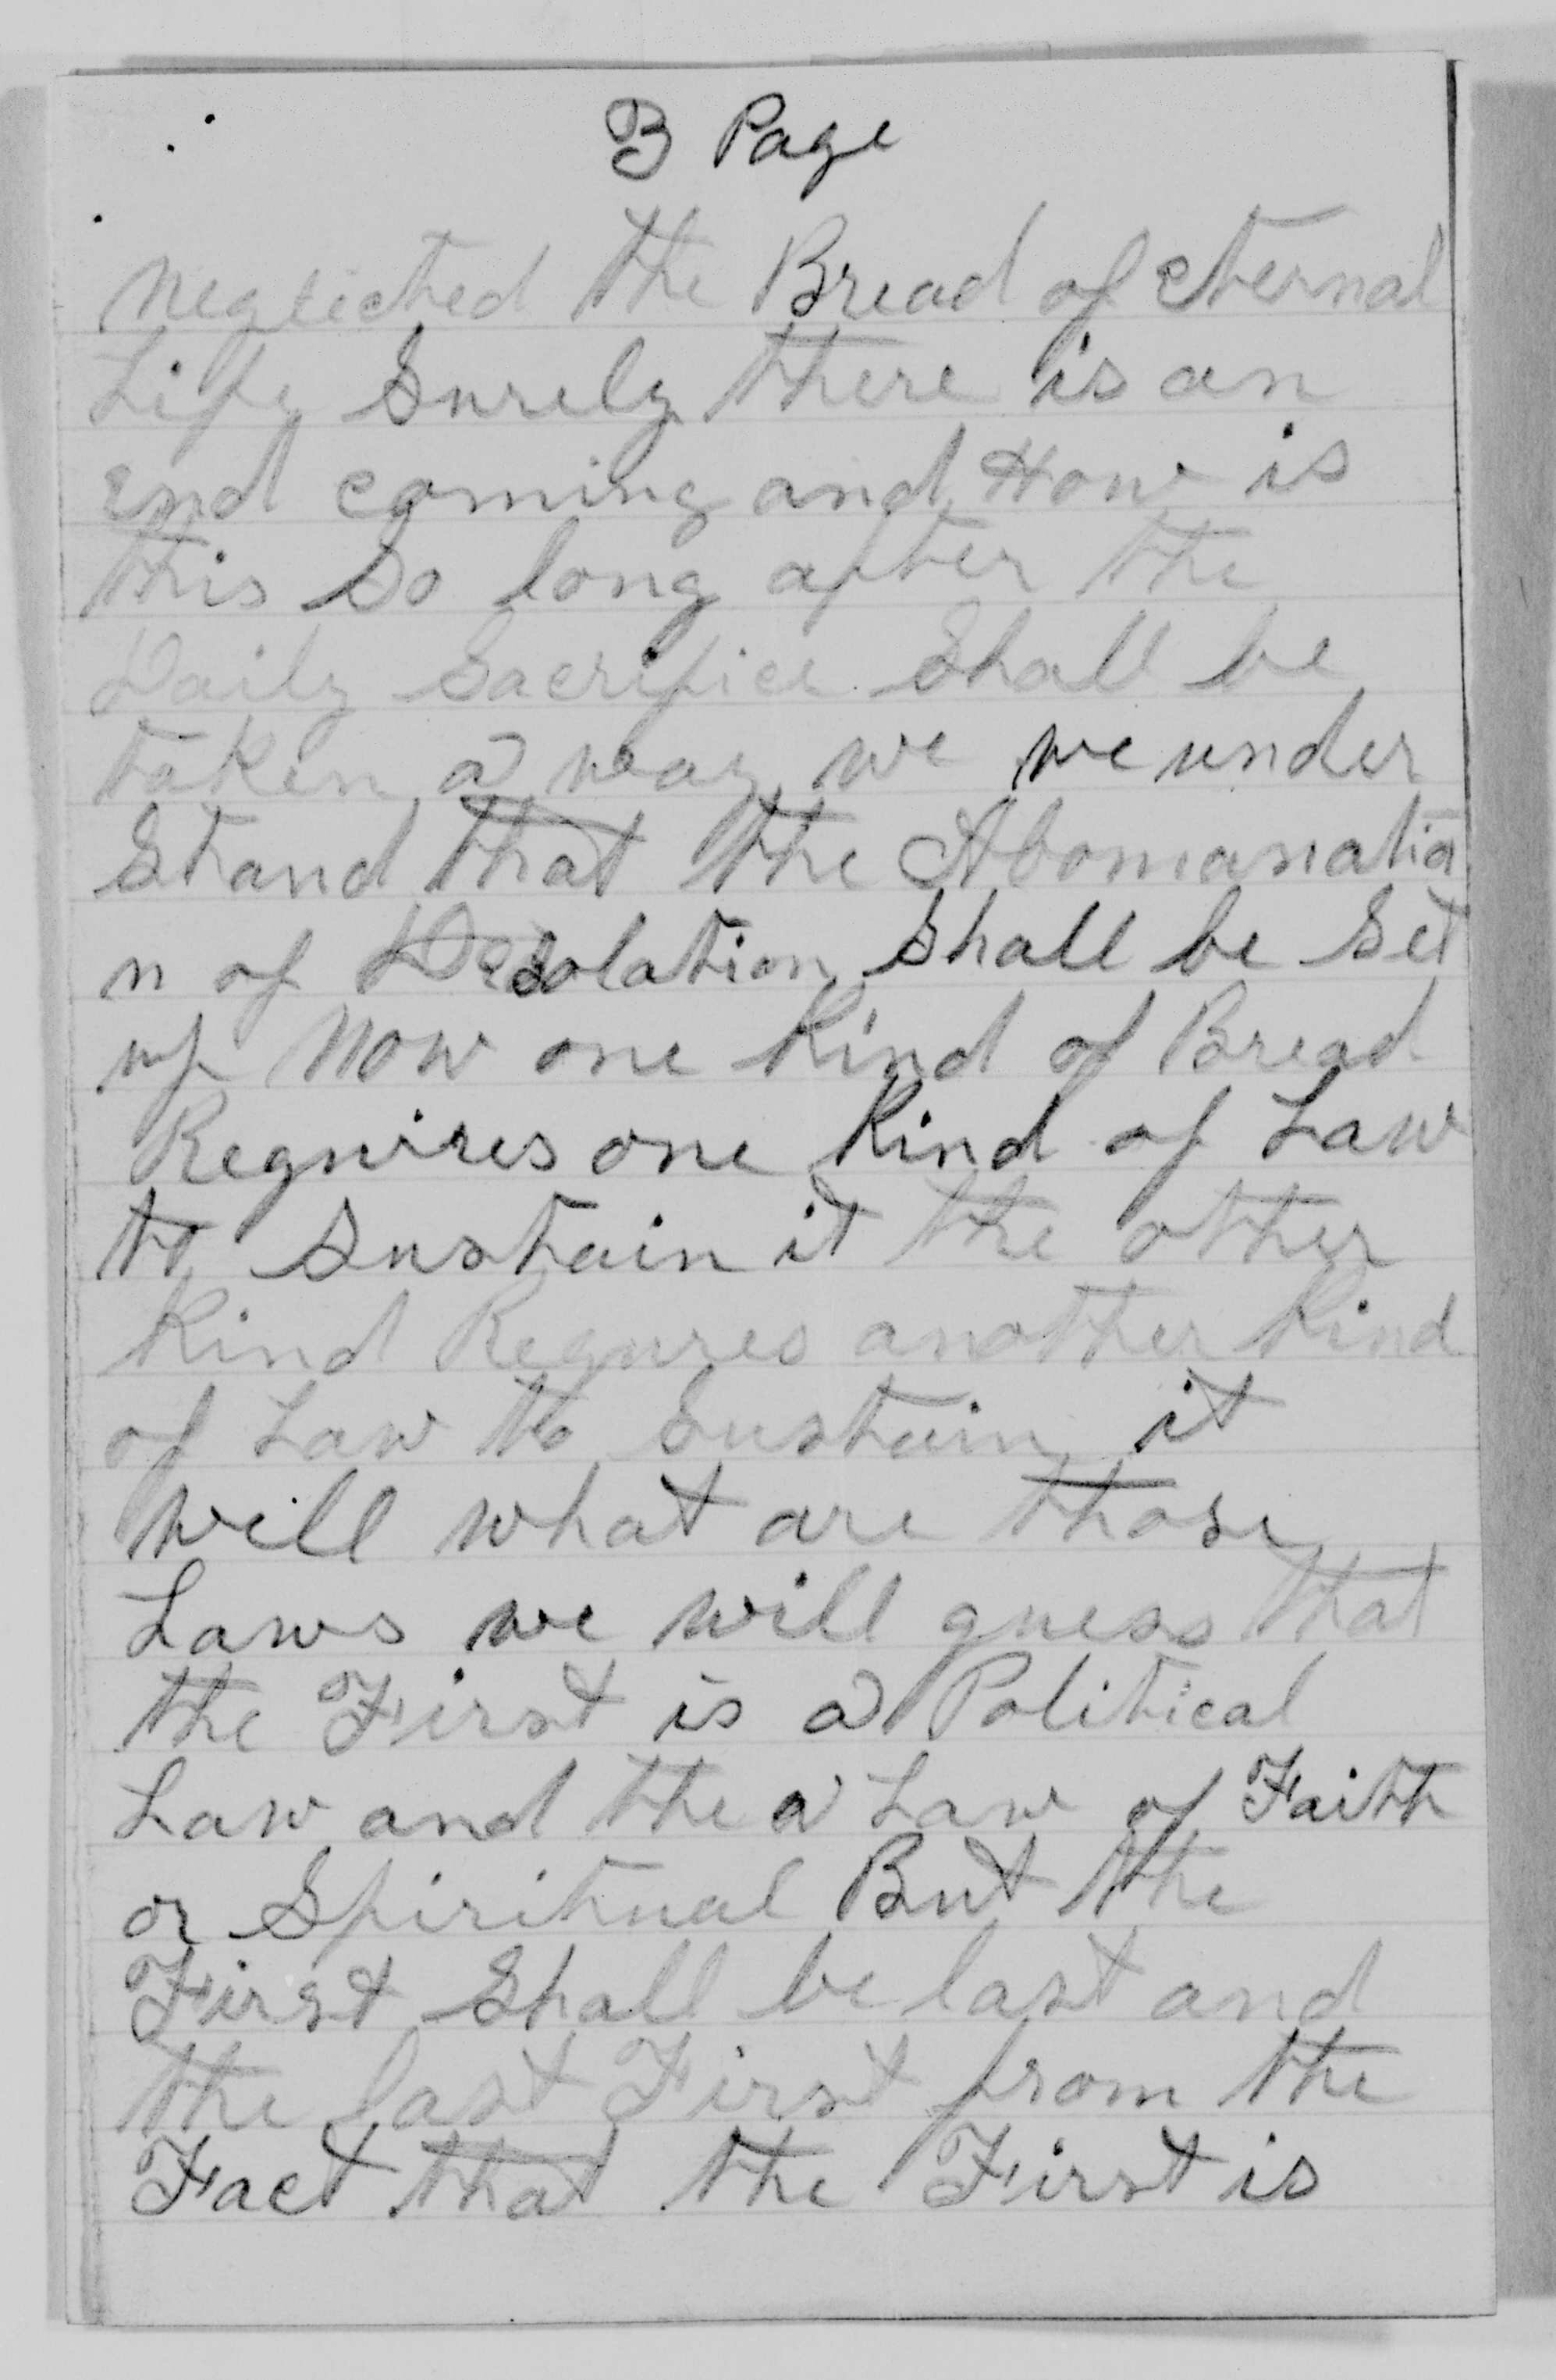 3 Page
neglected the Bread of eternal
Life Surely there is an
end coming and How is
this So long after the
Daily Sacrifice Shall be
taken a way we we under
Stand that the Abomanatio
n of Desolation Shall be Set
up Now one Kind of Bread
Requires one Kind of Law
to Sustain it the other
Kind Requres another Kind
of Law to Sustain it
will what are those
Laws we will guess that
the First is a Political
Law and the a Law of Faith
or Spiritual But the
First Shall be last and
the last First from the
Fact that the First is